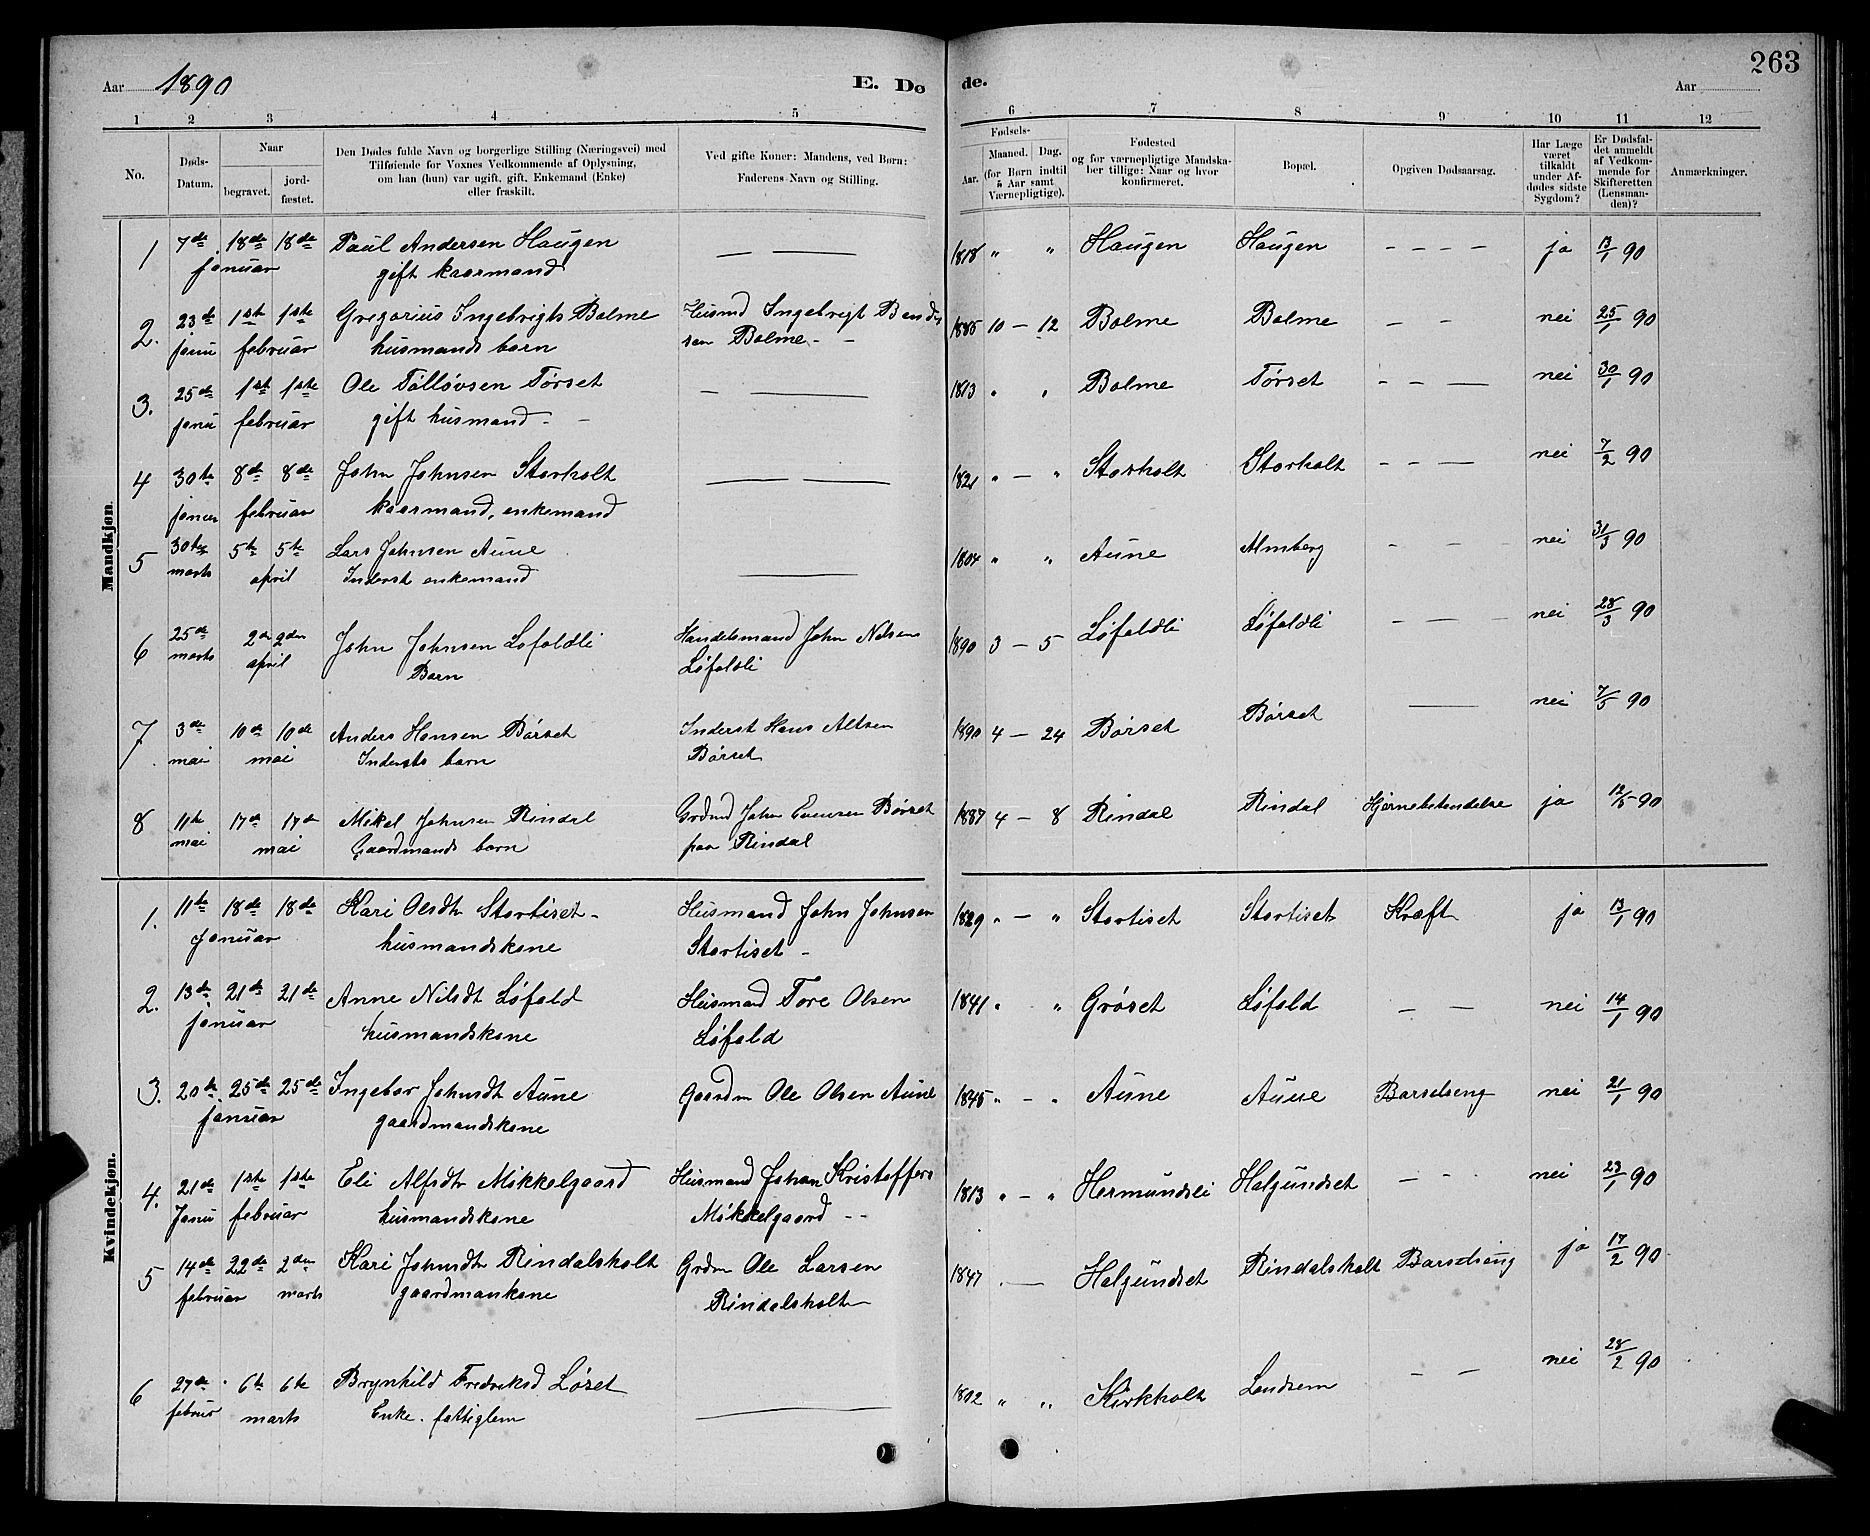 263
Aar 1890 E. Dø de. Aar
1 2 3 4 5 6 7 8 9 10 11 12
No.
Døds-
Datum.
Naar
begravet.
jord-
fæstet.
Den Dødes fulde Navn og borgerlige Stilling (Næringsvei) med
Tilføiende for Voxnes Vedkommende af Oplysning,
om han (hun) var ugift, gift, Enkemand (Enke)
eller fraskilt.
Ved gifte Koner: Mandens, ved Børn:
Faderens Navn og Stilling.
Fødsels-
Aar.
Maaned. Dag.
(for Børn indtil
5 Aar samt
Værnepligtige).
Fødested
og for værnepligtige Mandska-
ber tillige: Naar og hvor
konfirmeret.
Bopæl.
Opgiven Dødsaarsag.
Har Læge
været
tilkaldt
under Af-
dødes sidste
Sygdom?
Er Dødsfal-
det anmeldt
af Vedkom-
mende for
Skifteretten
(Lensman-
den)?
Anmærkninger.
Mandkjøn.
1 7de 18de 18de Paul Andersen Haugen — — 1818 " " Haugen Haugen - - - - ja 13/1 90
januar gift kaarmand
2. 23de 1ste 1ste Gregorius Ingebrigts Bolme Husmd Ingebrigt Bends 1885 10 — 12 Bolme Bolme - - nei 25/1 90
janu februar husmands barn sen Bolme - -
3. 25de 1ste 1ste Ole Tølløvsen Tørset - — 1813 " " Bolme Tørset - - — nei 30/1 90
janu februar gift husmand - -
4 30te 8de 8de John Johnsen Storholt — — 1821 " — " Storholt Storholt - - — nei 7/2 90
januar februar kaarmand, enkemand
5 30te 5te 5te Lars Johnsen Aune — 1804 " " Aune Almberg - — - nei 31/3 90
marts april Inderst enkemand
6 25de 2den 2den John Johnsen Løfaldli Handelsmand John Nilsen 1890 3 — 5 Løfaldli Løfaldli - — - nei 28/3 90
marts april Barn Løfaldli
7. 3de 10de 10de Anders Hansen Børset Inderst Hans Altsen 1890 4 — 24 Børset Børset — nei 7/5 90
mai mai Indersts barn Børset
8 11te 17de 17de Mikal Johnsen Rindal Grdmd John Evensen Børset 1887 4 — 8 Rindal Rindal Hjernebetændelse ja 12/5 90
mai mai Gaardmands barn paa Rindal
Kvindekjøn.
1. 11te 18de 18de Kari Olsdtr Stortiset - Husmand John Johnsen 1829 " — " Stortiset Stortiset Kræft ja 13/1 90
januar husmandskone Stortiset -
2. 13de 21de 21de Anne Nilsdt Løfald Husmand Tore Olsen 1841 " " Grøset Løfald - — nei 14/1 90
januar husmandskone Løfald
3. 20de 25de 25de Ingebor Johnsdt Aune Gaardm Ole Olsen Aune 1845 " - " Aune Aune Barselseng nei 21/1 90
januar gaardmandskone
4. 21de 1ste 1ste Eli Alfsdtr Mikkelgaard Husmand Johan Kristoffers 1813 " - " Hermundsli Halgundset — - - nei 23/1 90
Janu februar husmandskone Mikkelgaard - -
5 14de 22de 2den Kari Johnsdtr Rindalsholt Grdm Ole Larsen 1847 " — Halgundset Rindalsholt Barselseng ja 17/2 90
februar marts gaardmankone Rindalsholt
6 27de 6te 6te Brynhild Fredriksd Løset — 1802 " " Kirkholt Landsem - — nei 28/2 90
februar marts Enke. fattiglem